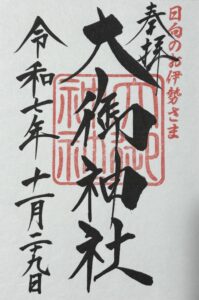 日向のお伊勢さま
奉拝
大御神社
令和七年 十一月二十九日
大御神社